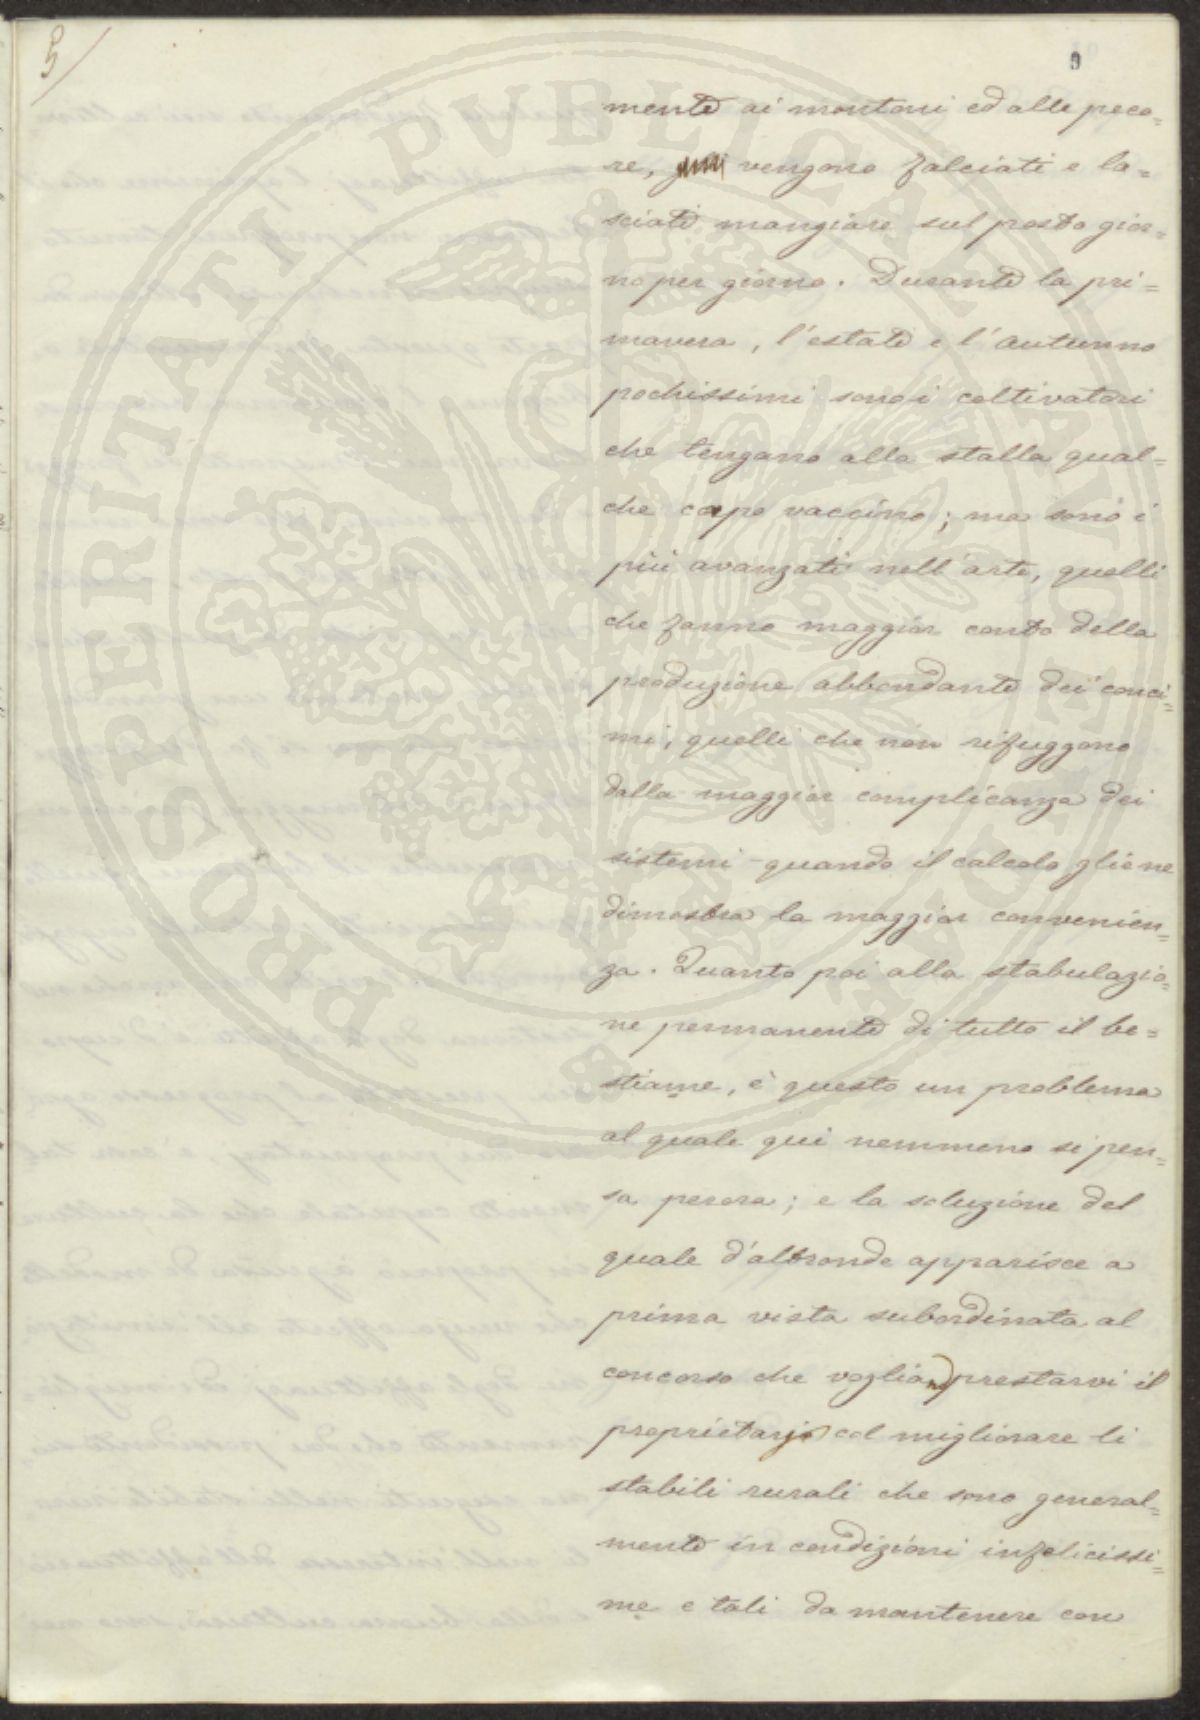 5
9
mente ai montoni ed alle peco=
re, vengono falciati e la=
sciati mangiare sul posto gior=
no per giorno. Durante la pri=
mavera, l'estate e l'autunno
pochissimi sono i coltivatori
che tengano alla stalla qual=
che capo vaccino; ma sono i
più avanzati nell'arte, quelli
che fanno maggior conto della
produzione abbondante dei conci=
mi, quelli che non rifuggono
dalla maggior complicanza dei
sistemi quando il calcolo gliene
dimostra la maggior convenien=
za. Quanto poi alla stabulazio=
ne permanente di tutto il be=
stiame, è questo un problema
al quale qui nemmeno si pen=
sa perora; e la soluzione del
quale d'altronde apparisce a
prima vista subordinata al
concorso che vogliano prestarvi il
proprietario col migliorare li
stabili rurali che sono general=
mente in condizioni infelicissi=
me e tali da mantenere con
PROSPERITATI PVBLICAE AVGENDAE